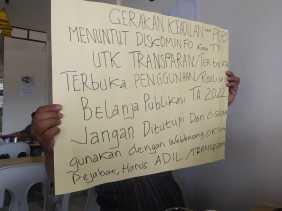 GERAKAN KEADILAN
MENUNTUT DISKOMINFO
UTK TRANSPARAN/Terbuka
TERBUKA PENGGUNAAN/
Belanja Publikasi TA 2022
Jangan Ditutupi Dan
gunakan dengan
Pejabat, Harus ADIL /TRANSPARAN